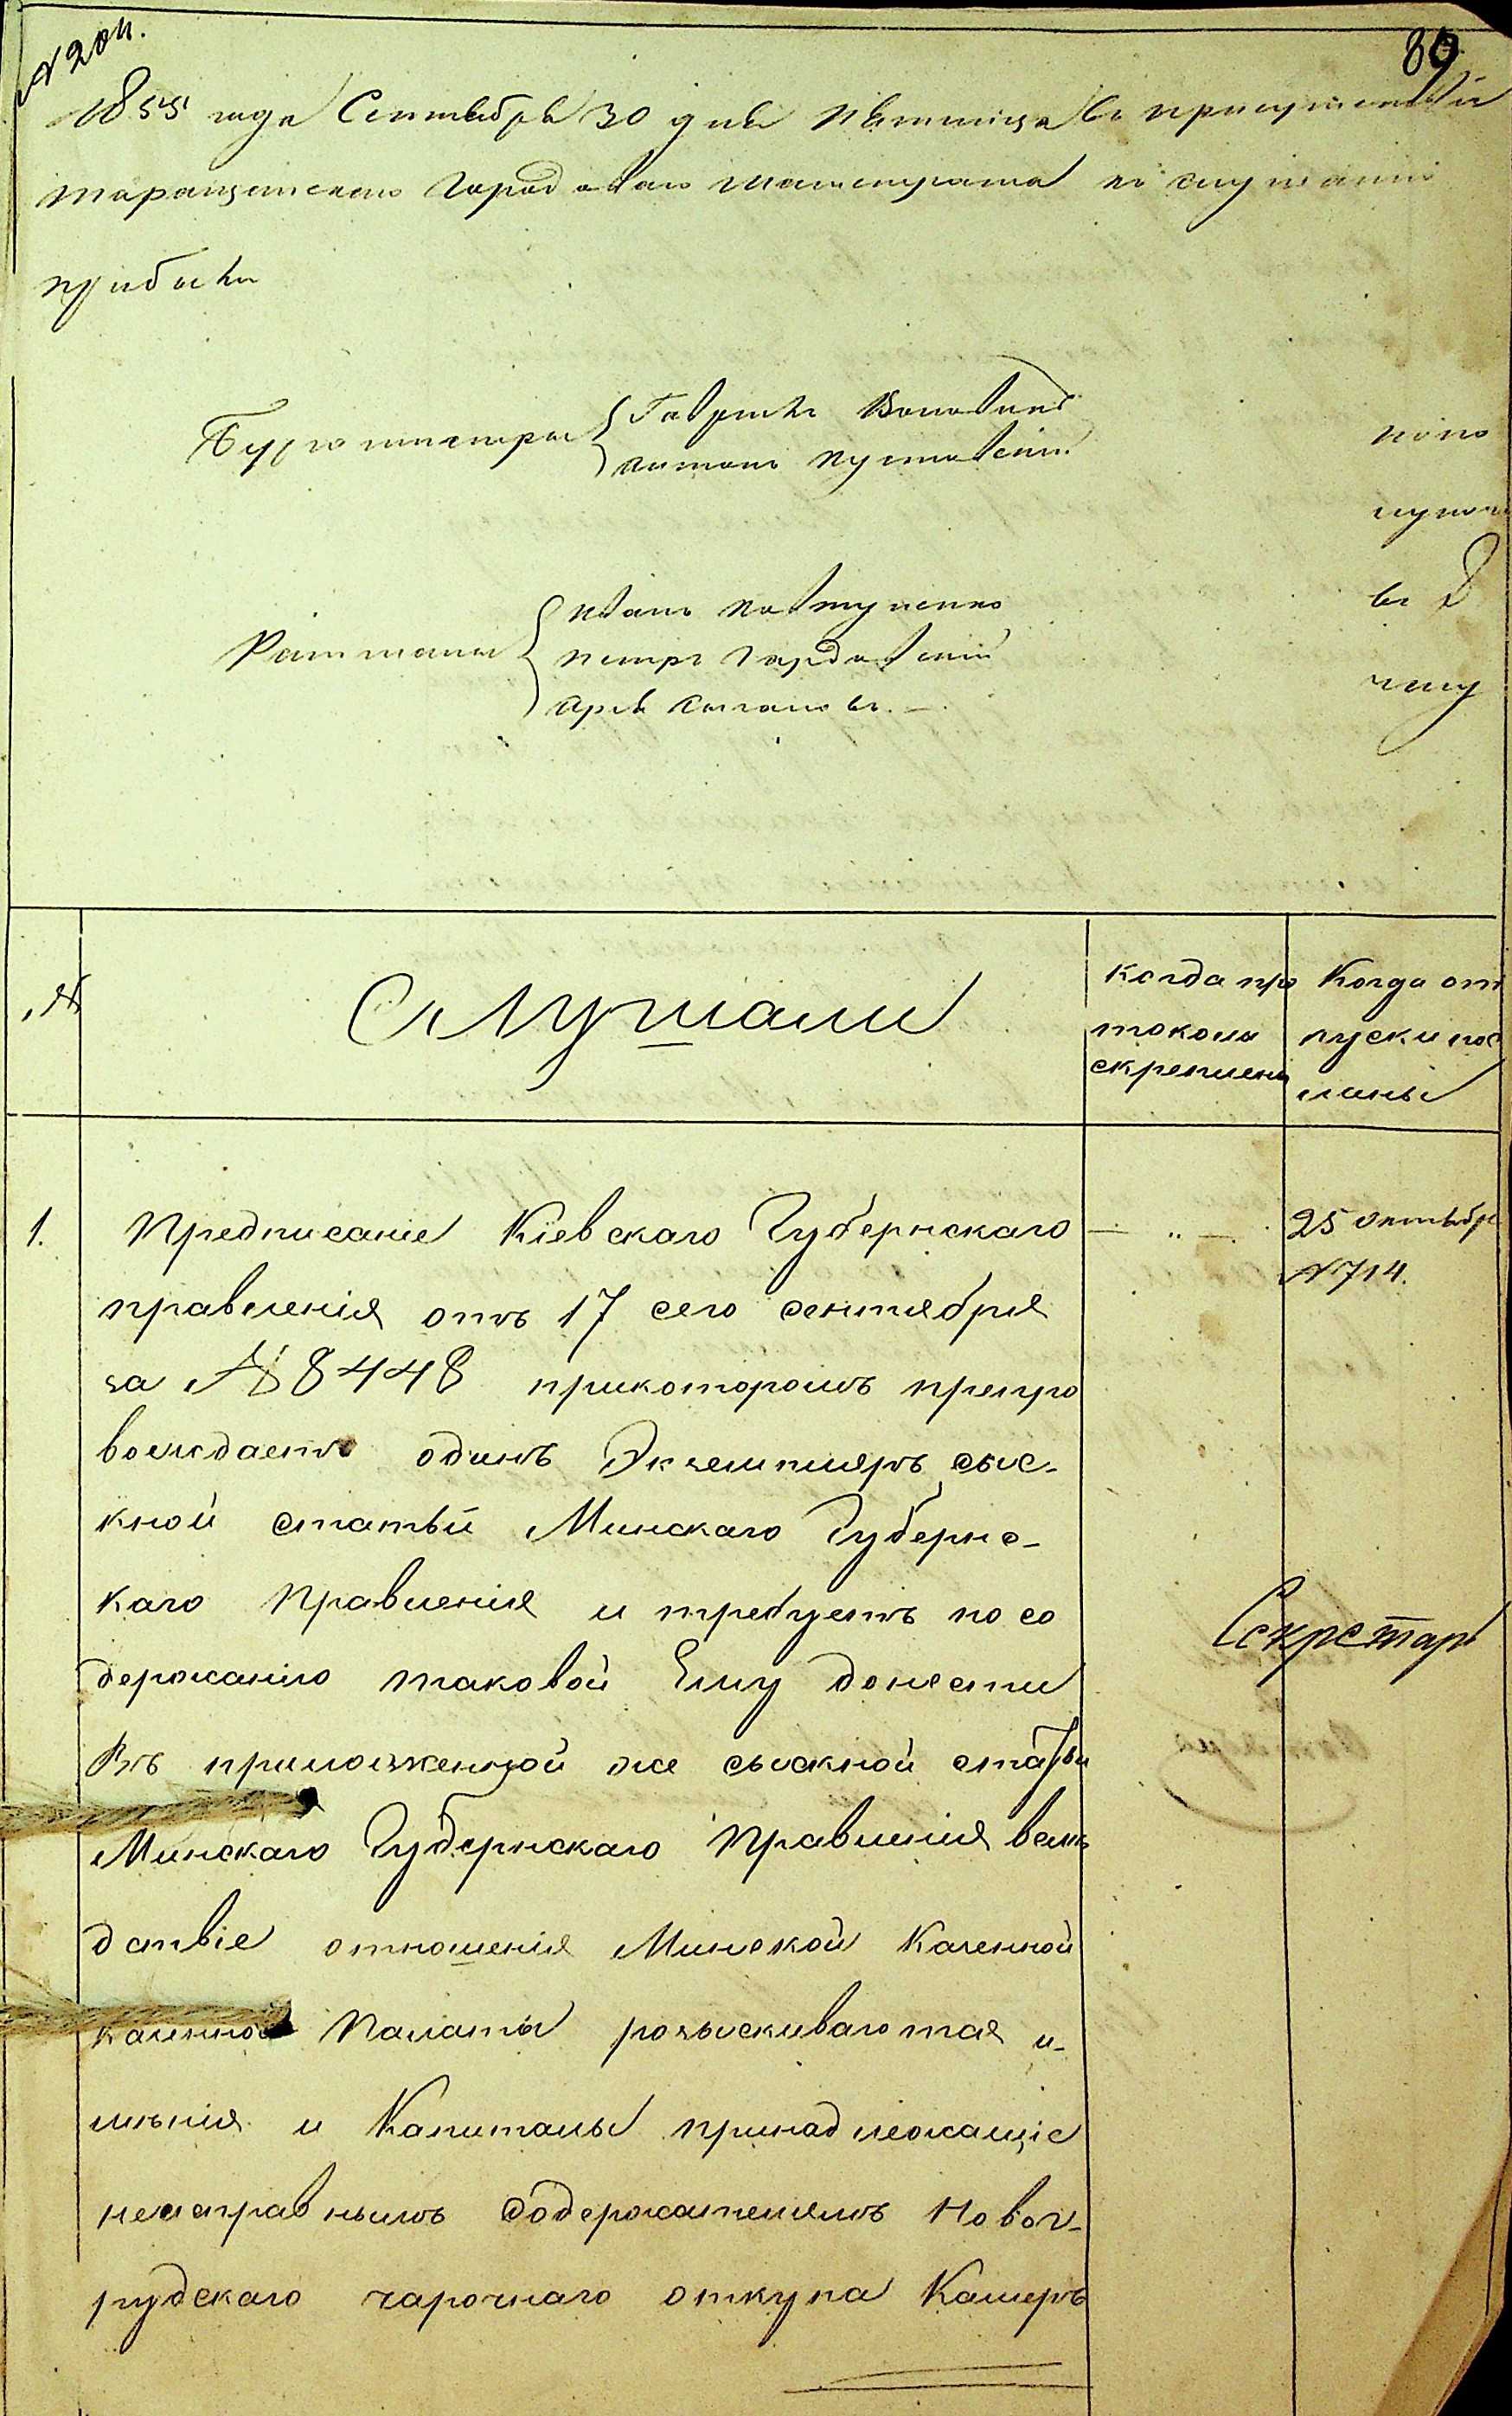 № 204.
89
1855 года Сентября 30 дня пятница въ присутствіи
Таращанскаго Городоваго Магистрата по слушанію
прибыли
Бургомистры { Гаврилъ
Антонъ Пустовскій
попо
въ
чему
Ратманы { Иванъ Ковтуненко
Петръ Гордовскій
№
Слушали
Когда про
токолы
скреплены
Когда от
пуски пос
ланы
1. Предписаніе Кіевскаго Губернскаго
правленія отъ 17 сего сентября
за № 8448 прикоторомъ препро
вождаетъ одинъ Экземпляръ сыс-
кной статьи Минскаго Губернс-
каго Правленія и требуетъ по со
держанію таковой Ему донести
Въ приложенной же сыскной статьи
Минскаго Губернскаго Правленія вслѣ
дствіе отношенія Минской Казенной
казенной Палаты розыскиваются и-
мѣнія и Капиталы принадлежащіе
неисправнымъ Содержателямъ Новог-
рудскаго чарочнаго откупа Камеръ
— „ —.
25 октября
№ 714.
Секретарь